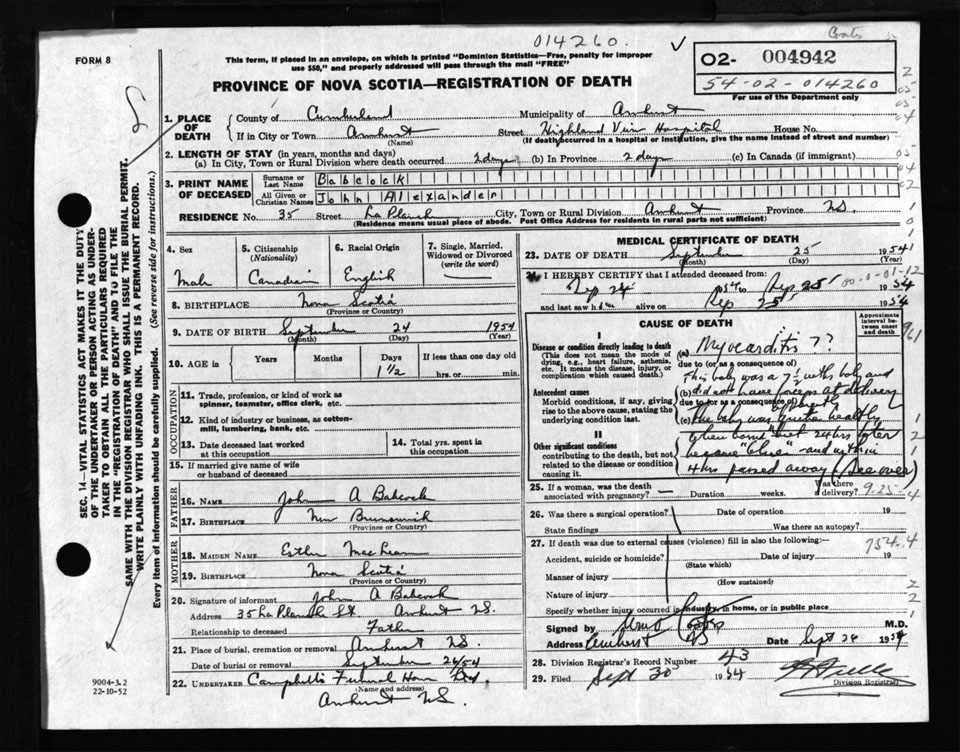 Coats
014260.
FORM 8
This form, if placed in an envelope, on which is printed "Dominion Statistics—Free, penalty for improper
use $50," and properly addressed will pass through the mail "FREE"
02- 004942
54-02-014260
For use of the Department only
PROVINCE OF NOVA SCOTIA—REGISTRATION OF DEATH
1. PLACE OF DEATH
County of Cumberland Municipality of Amherst
If in City or Town Amherst Street Highland View Hospital House No.
(Name) (If death occurred in a hospital or institution, give the name instead of street and number)
2. LENGTH OF STAY (in years, months and days)
(a) In City, Town or Rural Division where death occurred 2 days (b) In Province 2 days (c) In Canada (if immigrant)
3. PRINT NAME OF DECEASED
Surname or Last Name Babcock
All Given or Christian Names John Alexander
RESIDENCE No. 35 Street La Planch City, Town or Rural Division Amherst Province NS.
(Residence means usual place of abode. Post Office Address for residents in rural parts not sufficient)
4. Sex Male
5. Citizenship (Nationality) Canadian
6. Racial Origin English
7. Single, Married, Widowed or Divorced (write the word)
8. BIRTHPLACE Nova Scotia
(Province or Country)
9. DATE OF BIRTH September 24 1954
(Month) (Day) (Year)
10. AGE in Years Months Days 1 1/2 If less than one day old hrs. or min.
OCCUPATION
11. Trade, profession, or kind of work as spinner, teamster, office clerk, etc.
12. Kind of industry or business, as cotton-mill, lumbering, bank, etc.
13. Date deceased last worked at this occupation
14. Total yrs. spent in this occupation
15. If married give name of wife or husband of deceased
FATHER
16. NAME John A Babcock
17. BIRTHPLACE New Brunswick
(Province or Country)
MOTHER
18. MAIDEN NAME Esther MacLean
19. BIRTHPLACE Nova Scotia
(Province or Country)
20. Signature of informant John A Babcock
Address 35 La Planche St Amherst NS.
Relationship to deceased Father
21. Place of burial, cremation or removal Amherst NS.
Date of burial or removal September 26/54
22. UNDERTAKER Campbell's Funeral Home Ltd
(Name and address)
Amherst NS.
MEDICAL CERTIFICATE OF DEATH
23. DATE OF DEATH September 25 1954
(Month) (Day) (Year)
24. I HEREBY CERTIFY that I attended deceased from:
Sep 24 1954 to Sep 25 1954
and last saw h im alive on Sep 25 1954
00-0-01-12
CAUSE OF DEATH
Approximate interval between onset and death
I
Disease or condition directly leading to death
(This does not mean the mode of dying, e.g., heart failure, asthenia, etc. It means the disease, injury, or complication which caused death.)
(a) Myocarditis ??
due to (or as a consequence of)
This baby was a 7 1/2 baby and
Antecedent causes
Morbid conditions, if any, giving rise to the above cause, stating the underlying condition last.
(b) did not have forceps at delivery
due to (or as a consequence of)
(c) The baby was quite healthy
II
Other significant conditions
contributing to the death, but not related to the disease or condition causing it.
when born but 24 hrs later
became "blue" and within
4 hrs passed away (See over)
25. If a woman, was the death associated with pregnancy? — Duration weeks. Was there delivery?
9.25-4
26. Was there a surgical operation? Date of operation 19
State findings Was there an autopsy?
27. If death was due to external causes (violence) fill in also the following:
754.4
Accident, suicide or homicide? Date of injury 19
(State which)
Manner of injury
(How sustained)
Nature of injury
Specify whether injury occurred in industry, in home, or in public place
Signed by Coates M.D.
Address Amherst NS Date Sept 26 1954
28. Division Registrar's Record Number 43
29. Filed Sept 30 1954
Division Registrar
SEC. 14—VITAL STATISTICS ACT MAKES IT THE DUTY
OF THE UNDERTAKER OR PERSON ACTING AS UNDER-
TAKER TO OBTAIN ALL THE PARTICULARS REQUIRED
IN THE "REGISTRATION OF DEATH" AND TO FILE THE
SAME WITH THE DIVISION REGISTRAR WHO SHALL ISSUE THE BURIAL PERMIT.
WRITE PLAINLY WITH UNFADING INK. THIS IS A PERMANENT RECORD.
Every item of information should be carefully supplied. (See reverse side for instructions.)
9004-3.2
22-10-52